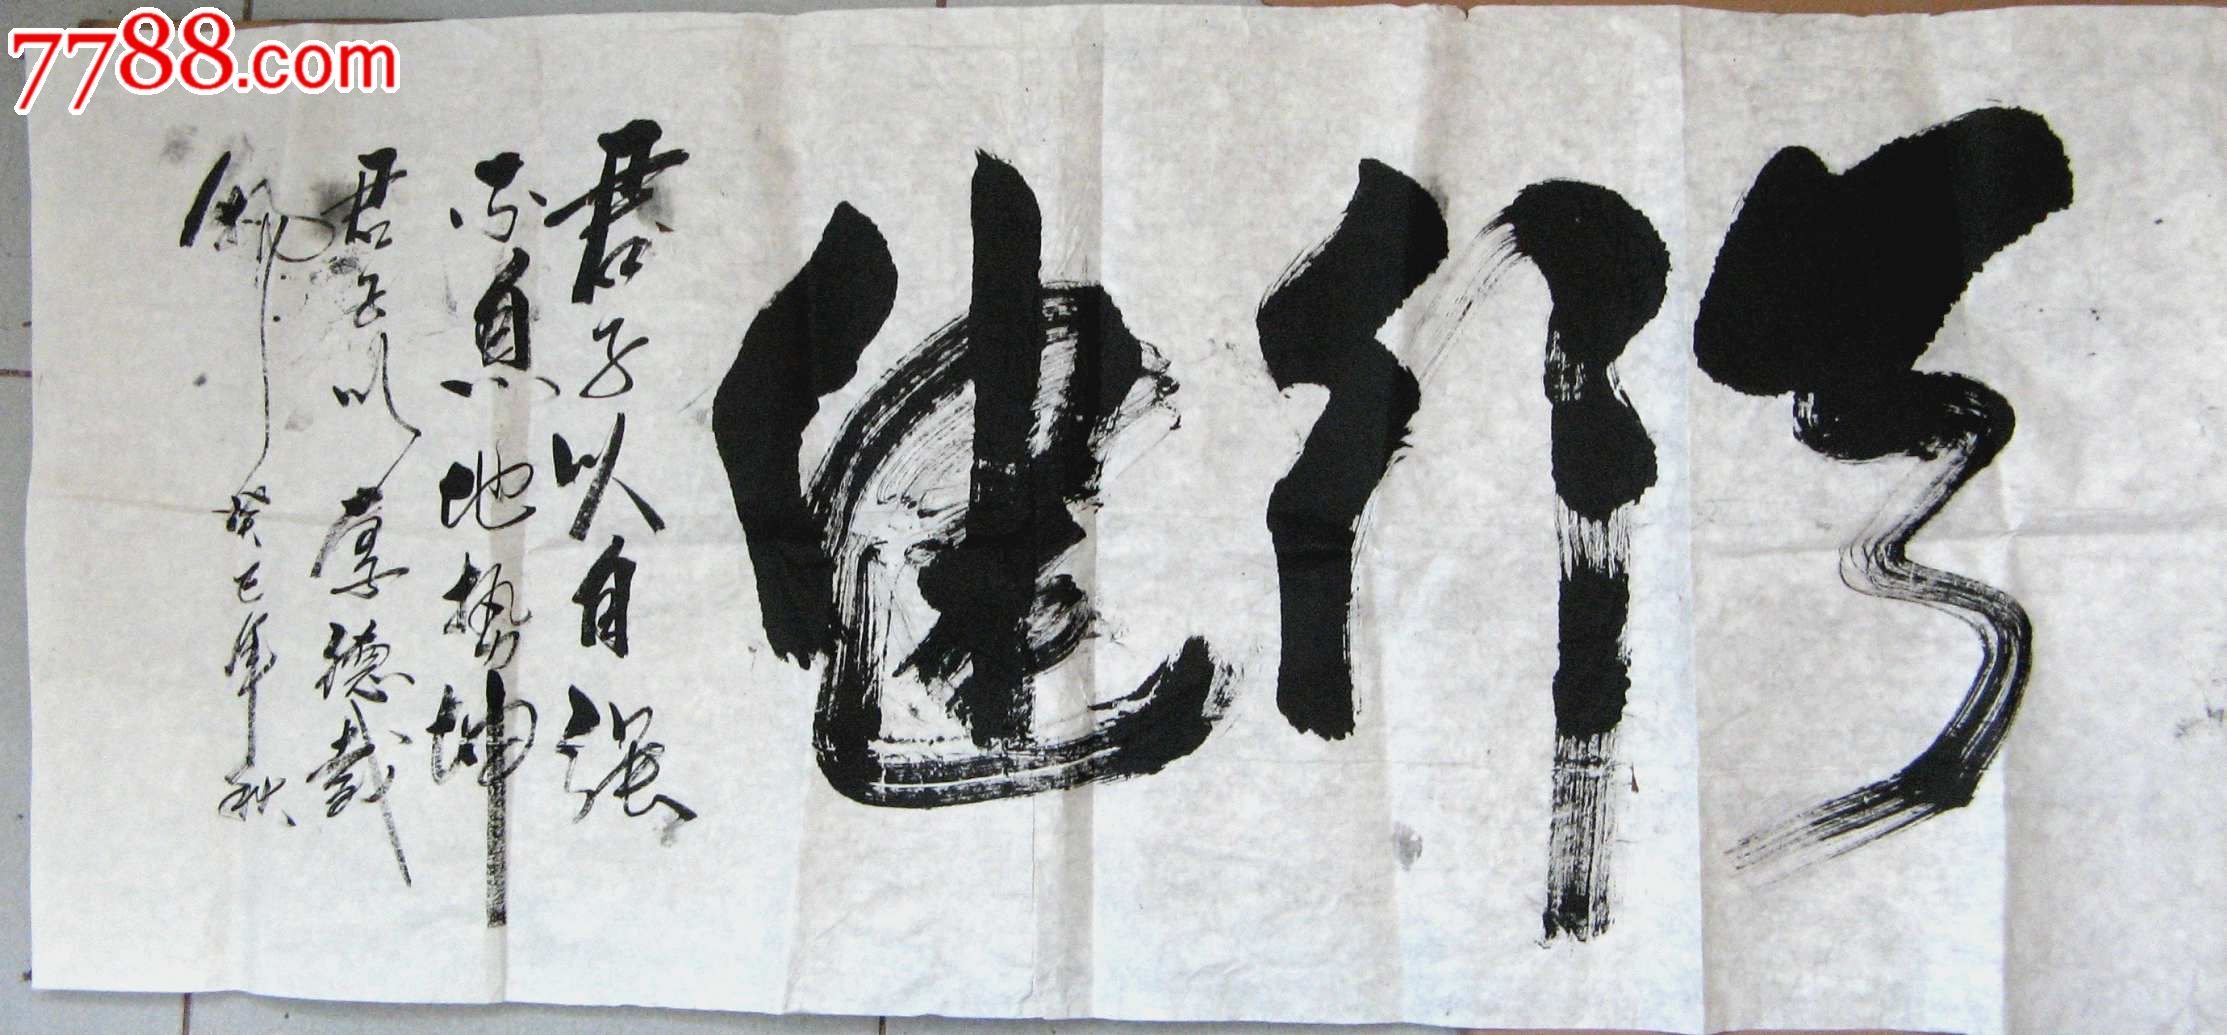 7788.com
天行健
君子以自强
不息地势坤
君子以厚德载
物
癸巳年秋